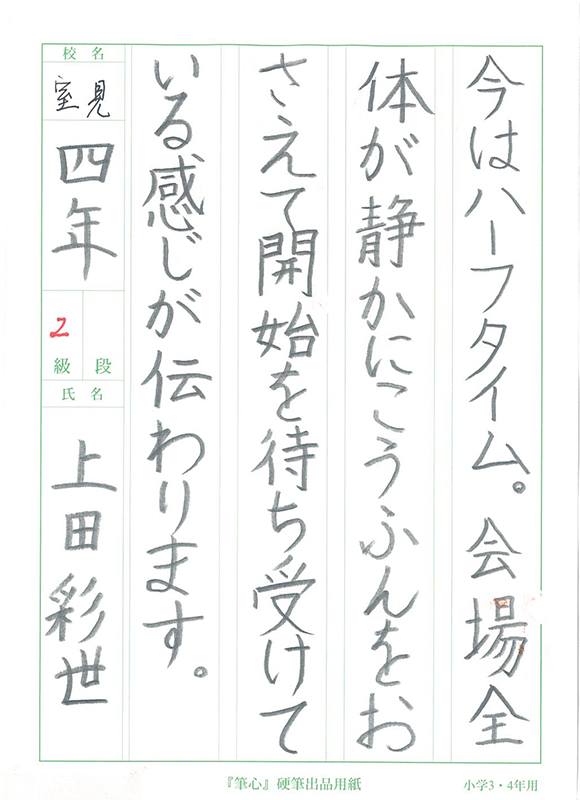 今はハーフタイム。会場全
体が静かにこうふんをお
さえて開始を待ち受けて
いる感じが伝わります。
校名
室見
四年
2
級 段
氏名
上田彩世
『筆心』硬筆出品用紙
小学3・4年用